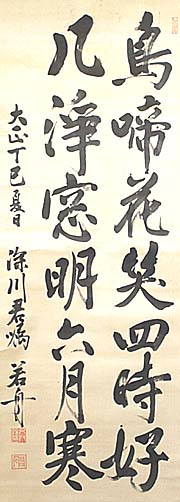 鳥啼花笑四時好
几淨窓明六月寒
大正丁巳夏日 深川君嘱 若舟